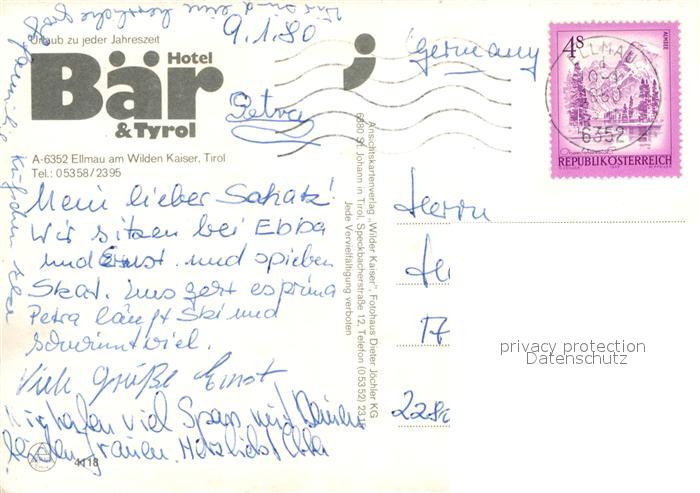 Urlaub zu jeder Jahreszeit
Hotel
Bär
& Tyrol
A-6352 Ellmau am Wilden Kaiser, Tirol
Tel.: 05358/2395
9.1.80
Petra
Mein lieber Schatz!
Wir sitzen bei Ebba
und Ernst und spielen
Skat. Uns geht es prima
Petra läuft Ski und
schwimmt viel.
Viele Grüße Ernst
Wir haben viel Spass mit Deinen
beiden Frauen. Herzlichst Ebba
4118
Ansichtskartenverlag „Wilder Kaiser", Fotohaus Dieter Jöchler KG
6380 St. Johann in Tirol, Speckbacherstraße 12, Telefon (05352)
Jede Vervielfältigung verboten
Germany
4S
ALMSEE
ELLMAU
6352
REPUBLIK ÖSTERREICH
Herrn
privacy protection
Datenschutz